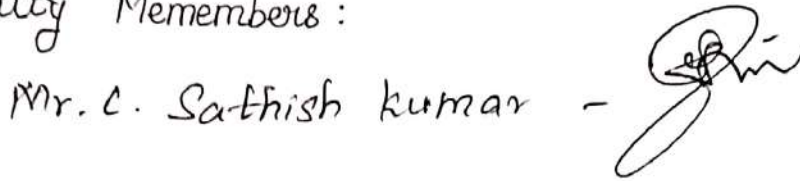 Memembers :
Mr. C. Sathish kumar -